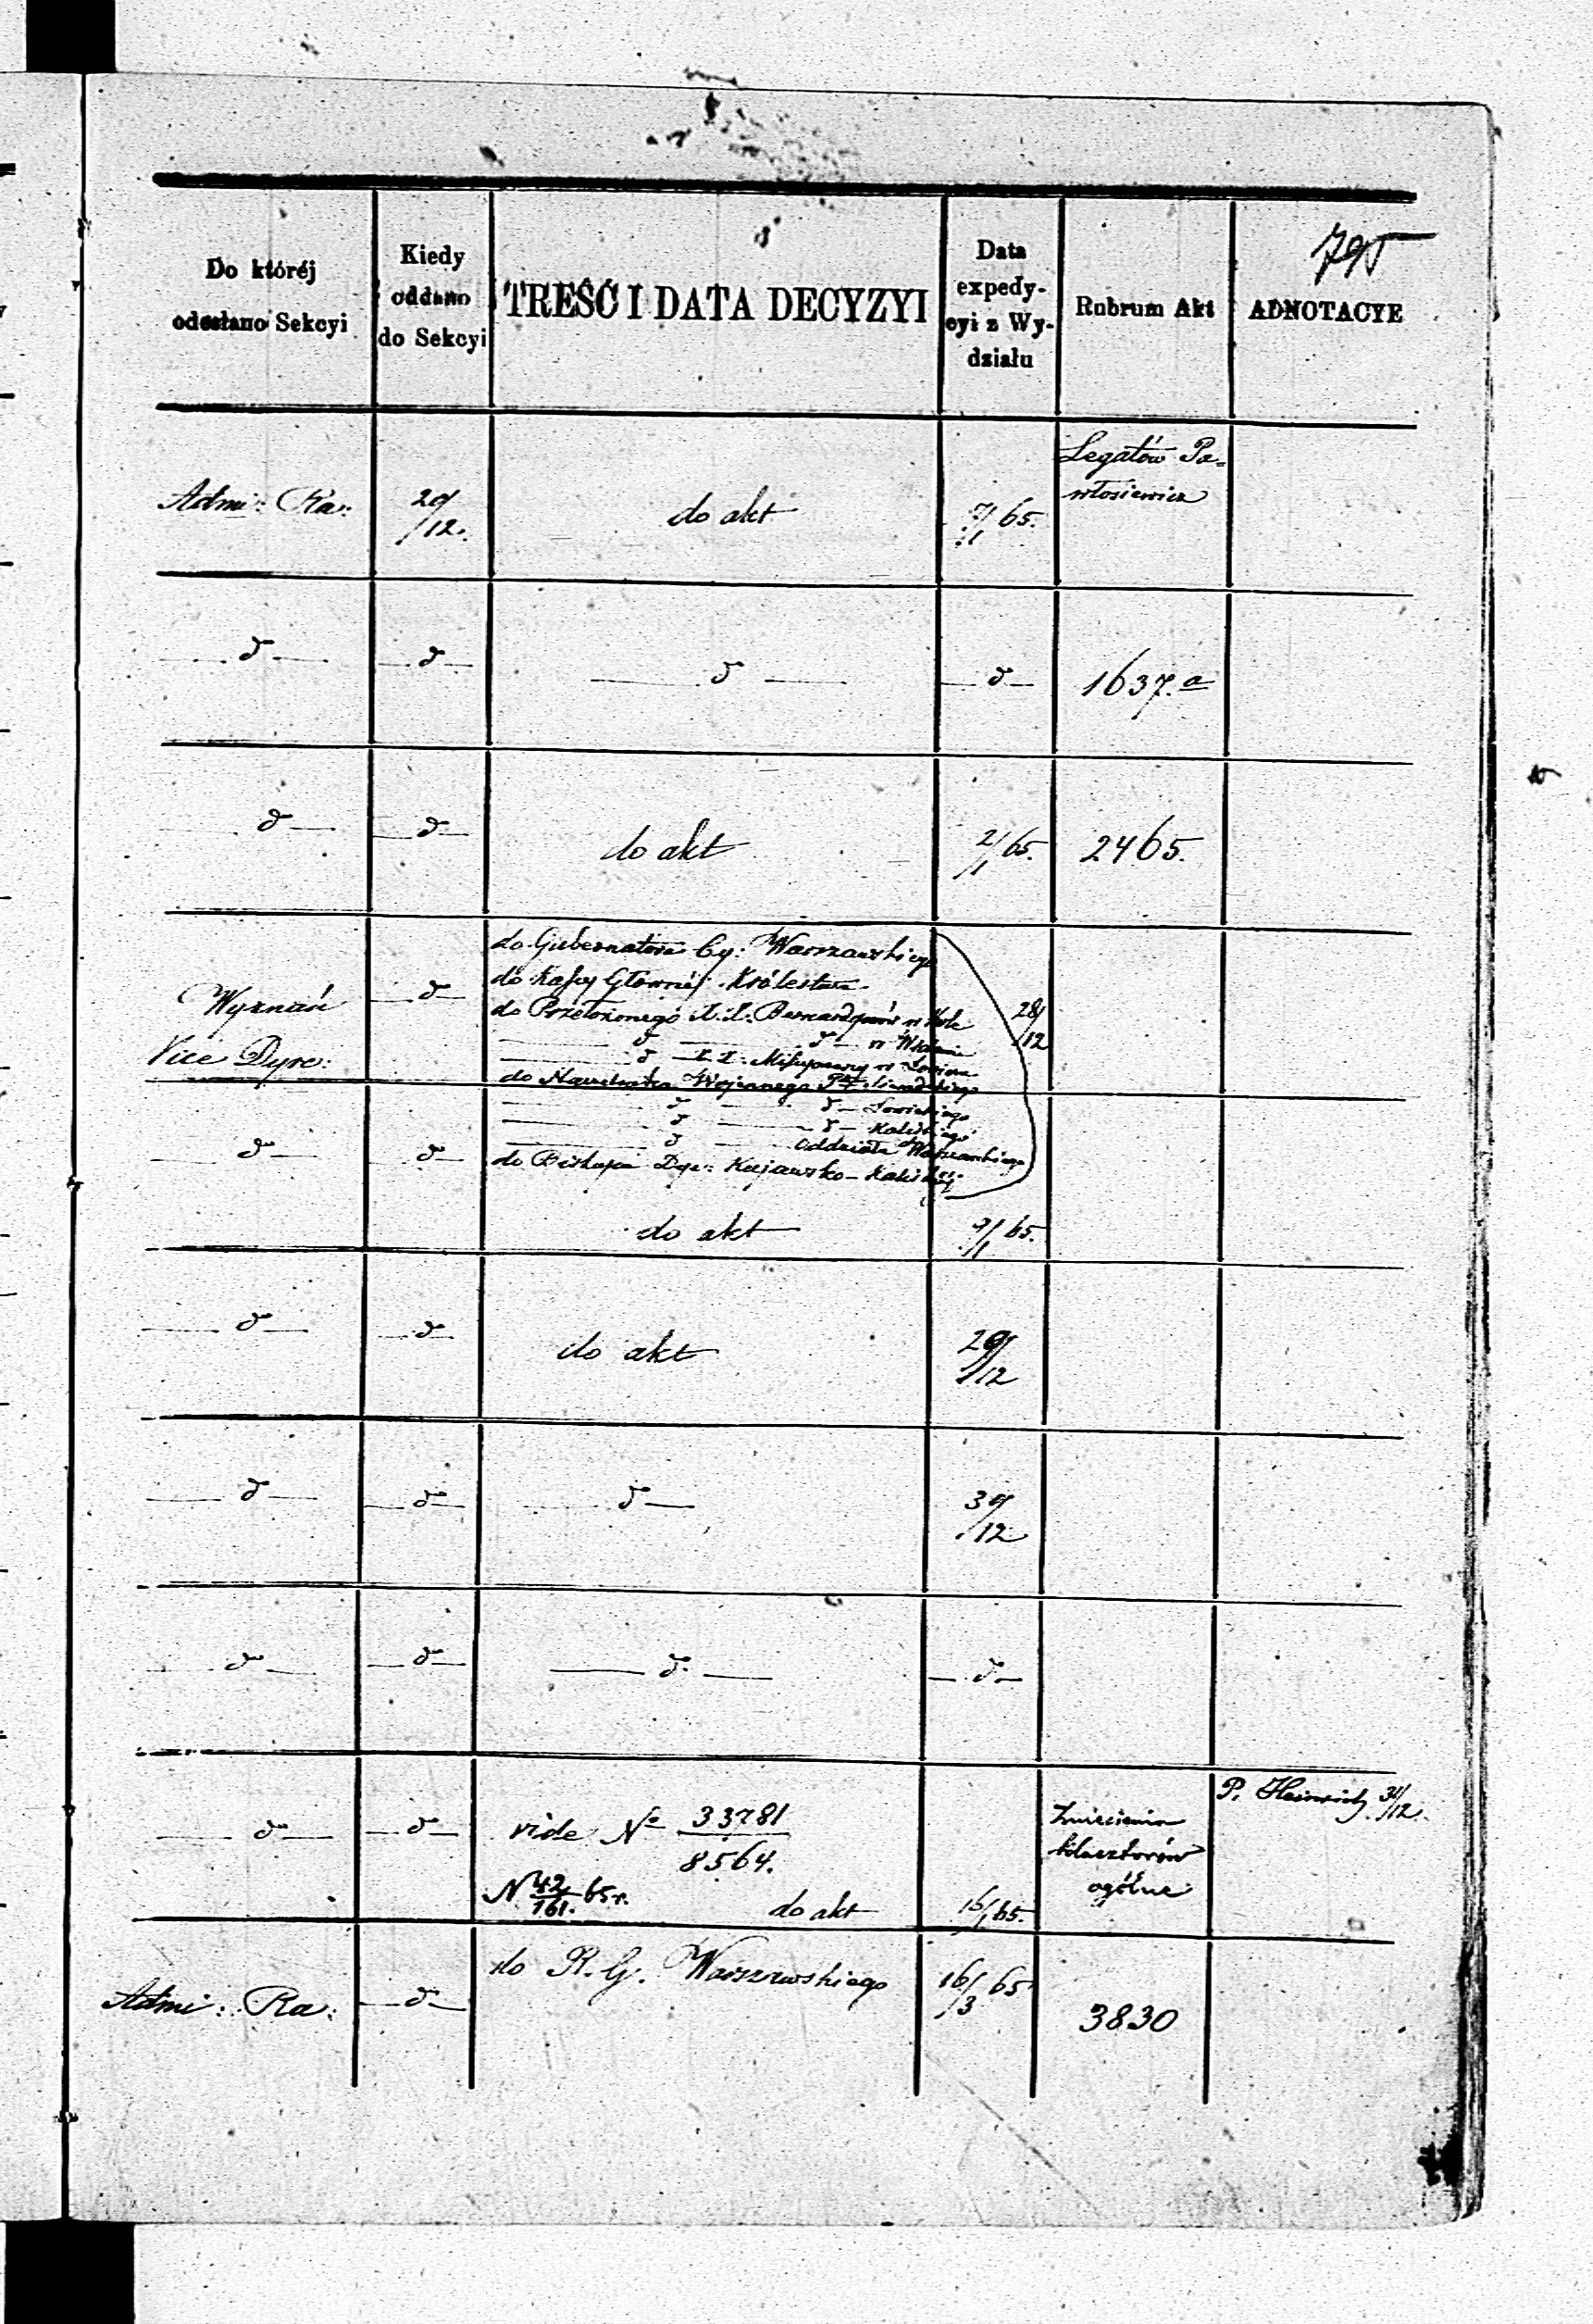 795
Do któréj
odesłano Sekcyi
Kiedy
oddano
do Sekcyi
TREŚĆ I DATA DECYZYI
Data
expedy-
cyi z Wy-
działu
Rubrum Akt
ADNOTACYE
Admi: Ra:
29/12.
do akt
/1 65.
Legatów Pa-
włosiewicz
— d —
— d —
— d —
— d —
1637.a
— d —
— d —
do akt
2/1 65.
2465.
Wyznań
Vice Dyre:
— d —
do Gubernatora Cy: Warszawskiego
do Kassy Głównéj Królestwa
do Przełożonego X.X. Bernardynów w Kole
— d — d — w
— d — X.X. w
do Naczelnika Wojennego Pttu Sieradzkiego
— d — d —
— d — d — Kaliskiego
— d — Oddziału Warszawskiego
do Biskupa Dye: Kujawsko-Kaliskiéj
28/12
— d —
— d —
do akt
/1 65.
— d —
— d —
do akt
29/12
— d —
— d —
— d —
/12
— d —
— d —
— d —
— d —
— d —
— d —
vide No 33781/8564.
N 42/161. 65 r.
do akt
16/1 65.
Zniesienia
klasztorów
ogólne
P. Heinrich 31/12.
Admi: Ra:
— d —
do R. G. Warszawskiego
16/3 65
3830